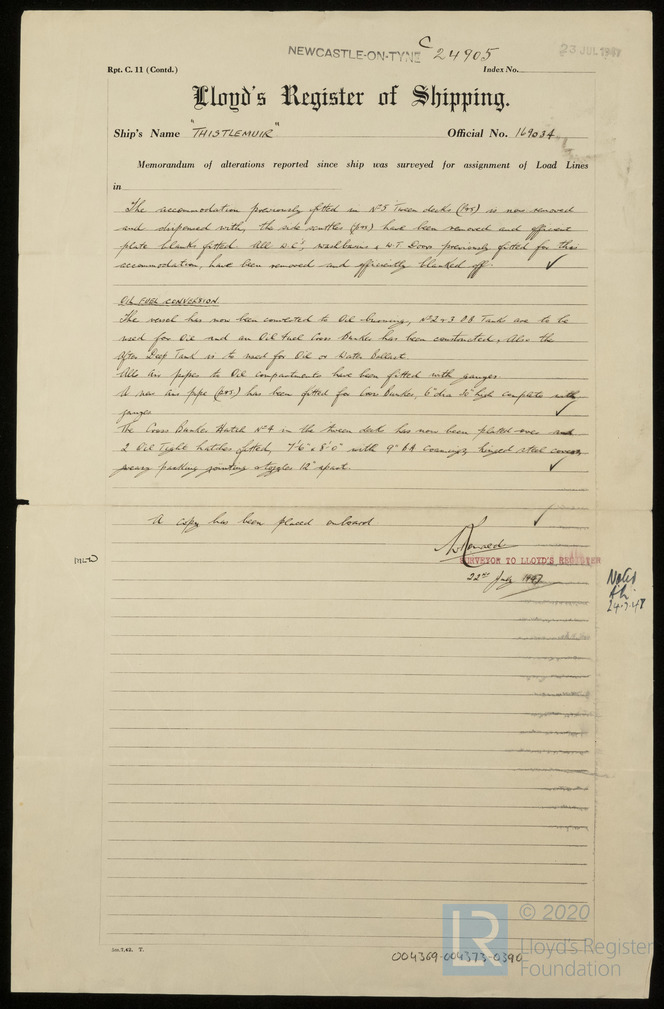 NEWCASTLE-ON-TYNE C 24905
23 JUL 1947
Rpt. C. 11 (Contd.) Index No.
Lloyd's Register of Shipping.
Ship's Name "THISTLEMUIR" Official No. 169034
Memorandum of alterations reported since ship was surveyed for assignment of Load Lines
in
The accommodation previously fitted in Nº5 Tween decks (P&S) is now removed
and dispensed with, the side scuttles (P&S) have been removed and efficient
plate blanks fitted All W.C's, washbasins & W.T Doors previously fitted for this
accommodation, have been removed and efficiently blanked off. ✓
OIL FUEL CONVERSION
The vessel has now been converted to Oil burning, Nº2 & 3 DB Tanks are to be
used for Oil and an Oil Fuel Cross Bunker has been constructed, Also the
After Deep Tank is to used for Oil or Water Ballast.
All air pipes to Oil compartments have been fitted with gauzes.
A new air pipe (P&S) has been fitted for Cross Bunker, 6" dia 30" high complete with
gauzes ✓
The Cross Bunker Hatch Nº4 in the tween decks has now been plated over and
2 Oil Tight hatches fitted, 7'-6" x 8'-0" with 9" BA Coamings, hinged steel covers,
greasy packing jointing & toggles 12" apart. ✓
A copy has been placed onboard ✓
SURVEYOR TO LLOYD'S REGISTER
22nd July 1947
Noted
24.7.47
004369-004373-0390
© 2020
Lloyd's Register
Foundation